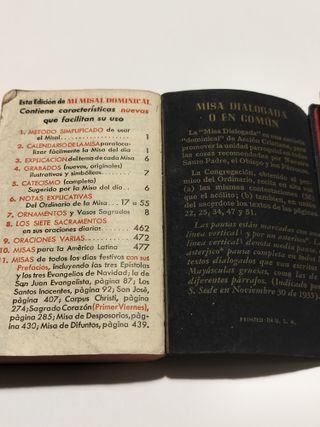 Esta Edición de MI MISAL DOMINICAL
Contiene características nuevas
que facilitan su uso
1. METODO SIMPLIFICADO de usar
el Misal 1
2. CALENDARIO DE LA MISA para loca-
lizar fácilmente la Misa del día 1
3. EXPLICACION del tema de cada Misa 6
4. GRABADOS (nuevos, originales)
ilustrativos y simbólicos 7
5. CATECISMO (completo)
Sugerido por la Misa del día 6
6. NOTAS EXPLICATIVAS
Del Ordinario de la Misa 17 a 55
7. ORNAMENTOS y Vasos Sagrados 8
8. LOS SIETE SACRAMENTOS
en sus oraciones diarias 462
9. ORACIONES VARIAS 472
10. MISAS para la América Latina 477
11. MISAS de todos los días festivos con sus
Prefacios, incluyendo las tres Epístolas
y los tres Evangelios de Navidad; la de
San Juan Evangelista, página 87; Los
Santos Inocentes, página 92; San José,
página 407; Corpus Christi, página
24; Sagrado Corazón (Primer Viernes),
página 285; Misa de Desposorios, pági-
na 430; Misa de Difuntos, página 439.
MISA DIALOGADA
O EN COMÚN
La "Misa Dialogada" es una
"dominical" de Acción Cristiana, que
promover la unidad parroquial
las cosas recomendadas por Nuestro
Santo Padre, el Obispo y el Párroco.
La Congregación, obteniendo el
miso del Ordinario, recita en
(a) las mismas contestaciones
que el acólito; (b) también, en
al sacerdote los textos de las páginas
22, 25, 34, 47 y 51.
Las pautas están marcadas con
línea vertical | y por un asterisco*.
línea vertical | denota media
asterisco* pausa completa en
textos dialogados que van escritos
Mayúsculas gruesas, como los de
diferentes párrafos. (Indicado por
S. Sede en Noviembre 30 de 1935).
PRINTED IN U. S. A.